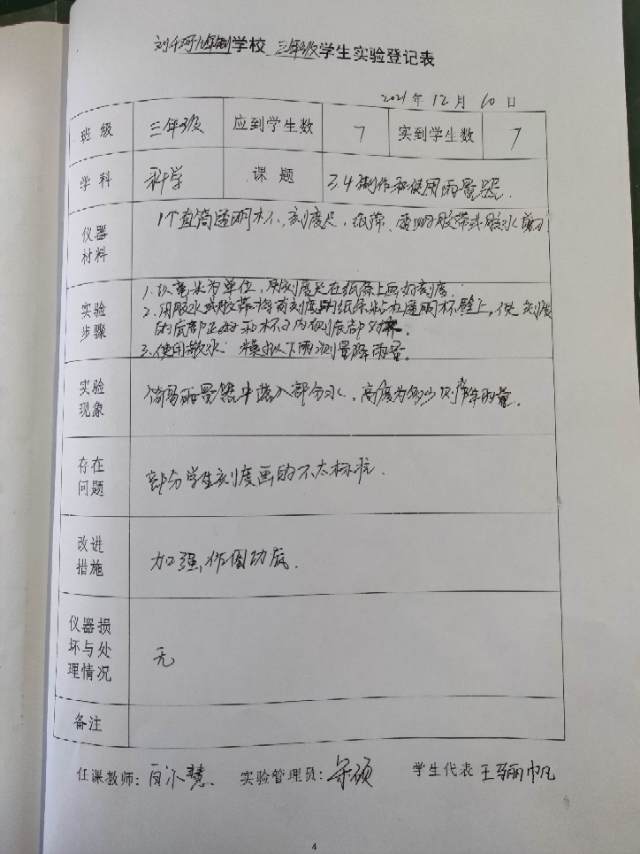 学校 三年级学生实验登记表
2021年12月10日
班级 三年级 应到学生数 7 实到学生数 7
学科 科学 课题 3.4制作和使用雨量器
仪器材料 1个直筒透明杯、刻度尺、纸条、透明胶带或胶水
实验步骤 1.以毫米为单位,用刻度尺在纸条上画好刻度.
2.用胶水或胶带将有刻度的纸条贴在透明杯壁上,使刻度
的底部正好和杯子内侧底部对
3.使用 水 模拟下雨测量降雨量
实验现象 简易雨量器中落入部分水,高度为
存在问题 部分学生刻度画的不太标准.
改进措施 加强作图功底.
仪器损坏与处理情况 无
备注
任课教师: 实验管理员: 学生代表 王
4